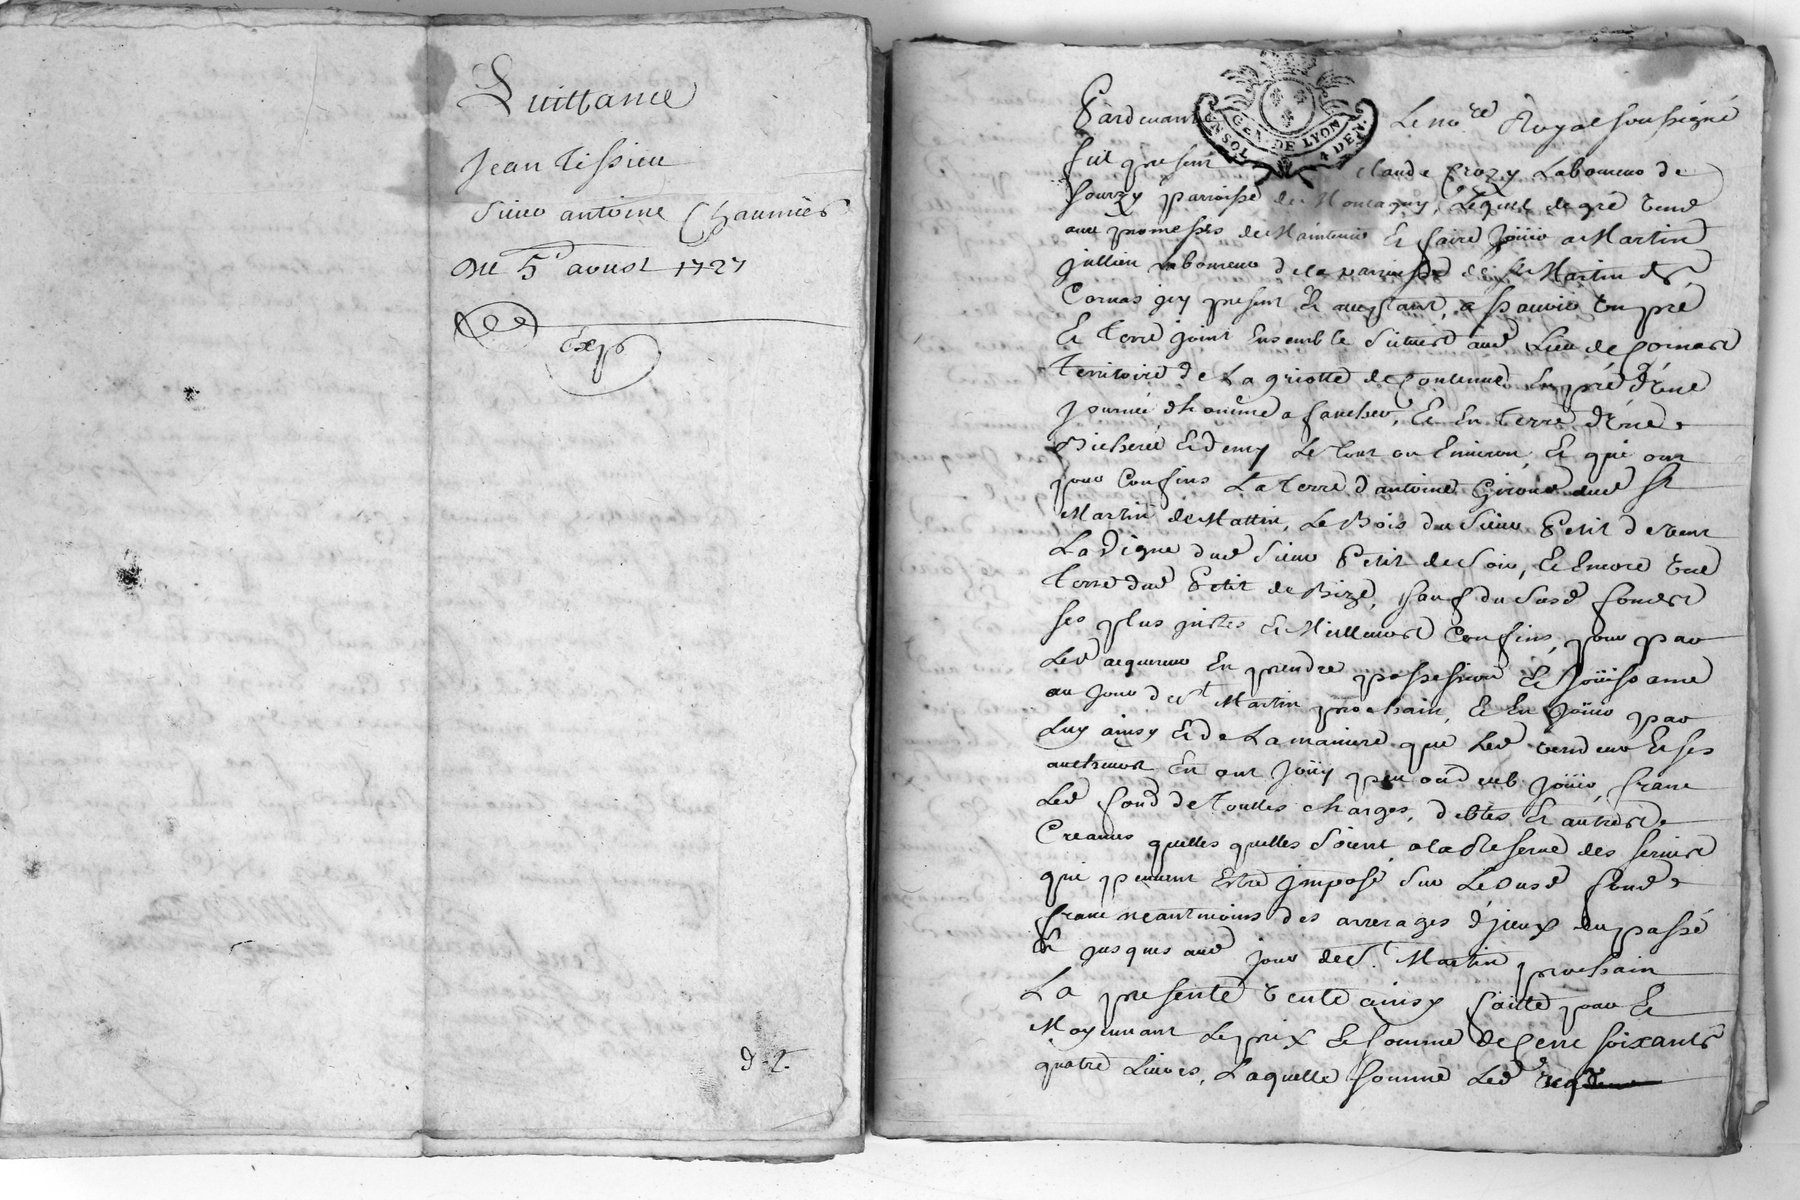 Quittance
Jean Tissieu
Sieur antoine Chaumier
Du 5 aoust 1727
Exp
Pardevant Le no.re Royal soussigné
GEN. DE LYON
UN SOL 4 DEN.
fut present Claude Crozy Laboureur de
Sourzy parroisse de Montagny, Lequel de gré vend
avec promesses de Maintenir Et faire Joüir a Martin
Jullien Laboureur de la parroisse de St Martin de
Cornas icy present Et acceptant, a sçauoir un pré
Et Terre joint Ensemble Situés aud Lieu de Cornas
Territoire de La griotte de Contenue En pré d'une
Journée d'homme a faucher, Et En Terre d'une
Bicherée Et demy Le Tout ou Enuiron, Et qui ont
pour Confins La Terre d'antoine Giroud dud St
Martin de Mattin, Le Bois du Sieur Petit de vent
La Vigne dud Sieur Petit de Soir, Et Encore une
Terre dud Petit de Bize, sauf du Susd fonds
ses plus justes Et Meilleurs Confins, pour par
Led acquereur En prendre possession Et Joüissance
au Jour de St Martin prochain, Et En Joüir par
Luy ainsy Et de La maniere que Led vendeur Et ses
autheurs En ont Joüy peu ou deub Joüir, franc
Led fond de Touttes charges, debtes Et autres
Creances quelles quelles Soient a la Reserve des servis
qui peuvent Estre Imposé Sur Le Susd fond
franc neantmoins des arrerages d'jceux du passé
Et jusques aud jour de St. Martin prochain
La presente vente ainsy faitte pour Et
Moyennant Le prix Et somme de Cent soixante
quatre Livres, Laquelle somme Led